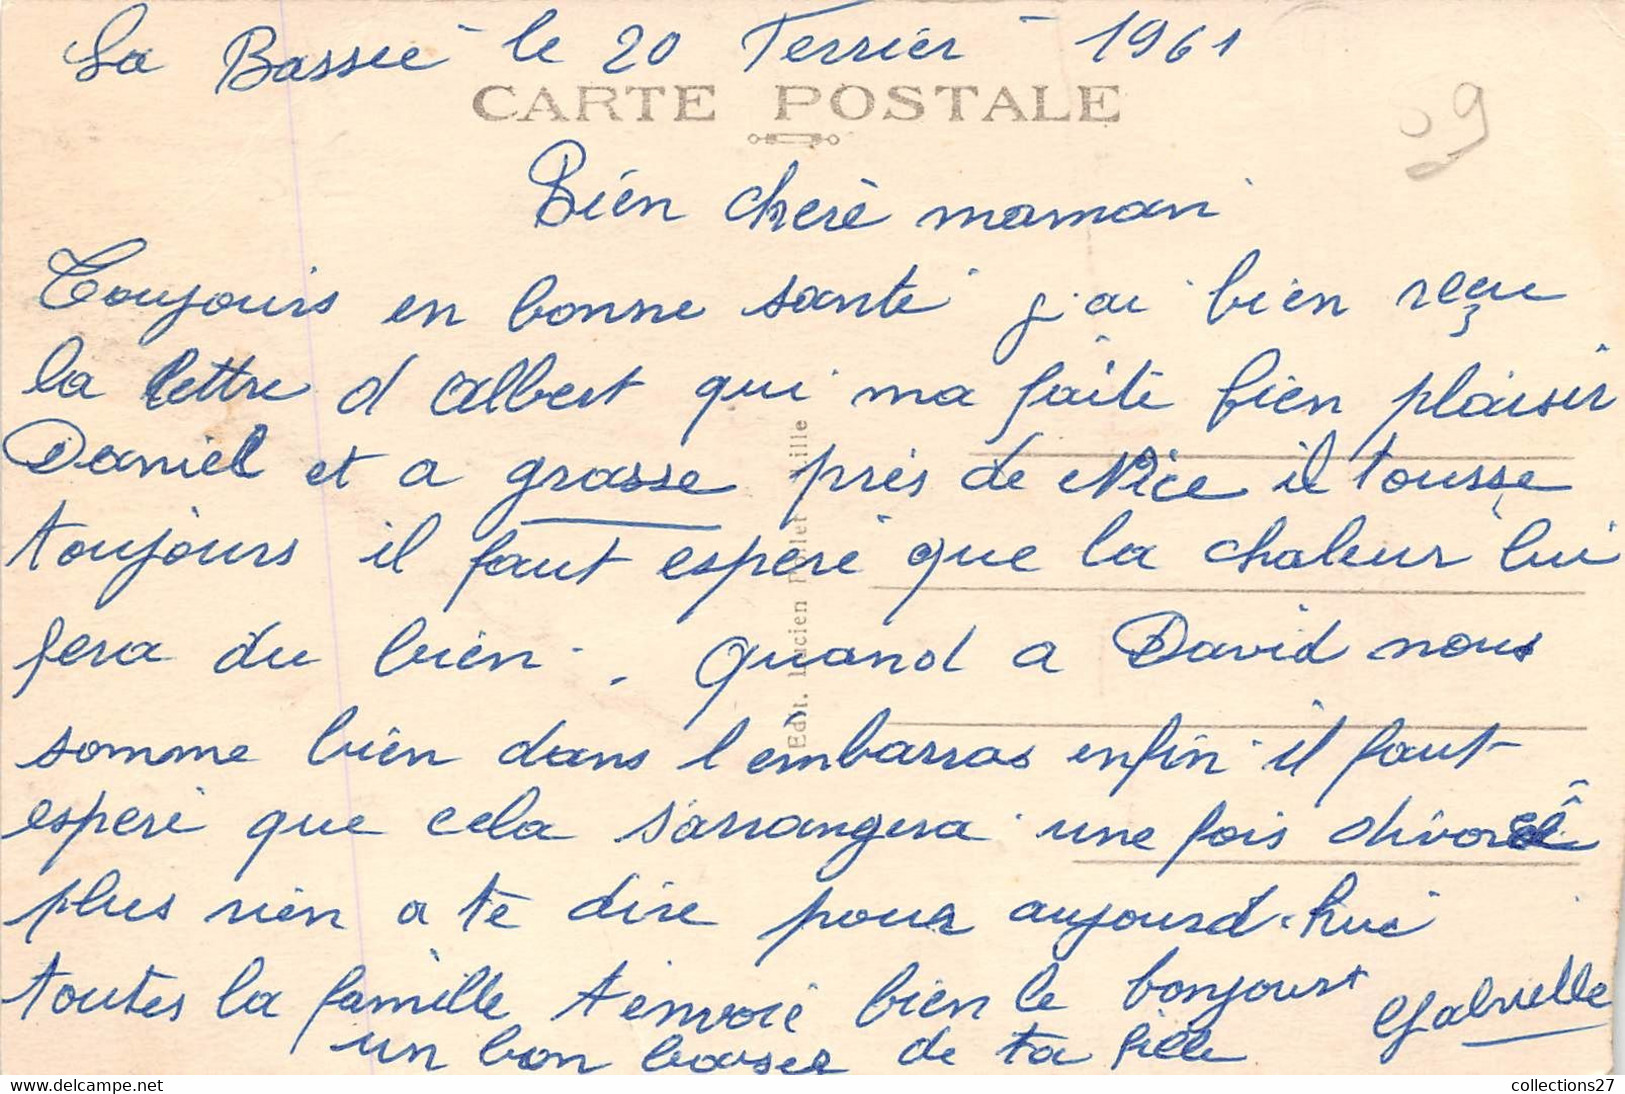 La Bassée le 20 Ferrier 1961
CARTE POSTALE
59
Bien chère maman
Toujours en bonne santé j'ai bien reçu
la lettre d Albert qui ma faite bien plaisir
Daniel et a grasse près de Nice il tousse
toujours il faut espéré que la chaleur lui
fera du bien. Quand a David nous
somme bien dans l'embarras enfin il faut
espéré que cela s'arrangera une fois divorcé
plus rien a te dire pour aujourd'hui
toutes la famille t'envoie bien le bonjour
Gabrielle
un bon baiser de ta fille
Edit. Lucien Pollet Lille
collections27